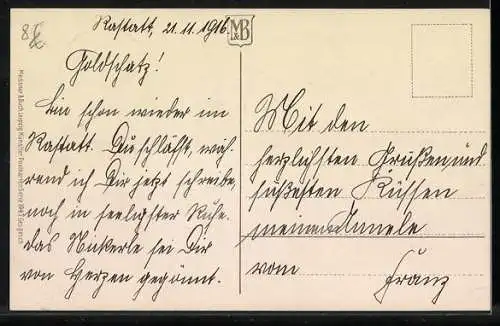 8
Rastatt, 21.11.1916.
M&B
Goldschatz!
Bin schon wieder im
Rastatt. Du schläfst, wäh-
rend ich Dir jetzt schreibe,
noch in seeligster Ruhe.
Das Nickerle sei Dir
von Herzen gegönnt.
Mit den
herzlichsten Grüßen und
süßesten Küssen
meinem Annele
vom
Franz
Meissner & Buch, Leipzig Künstler-Postkarten Serie